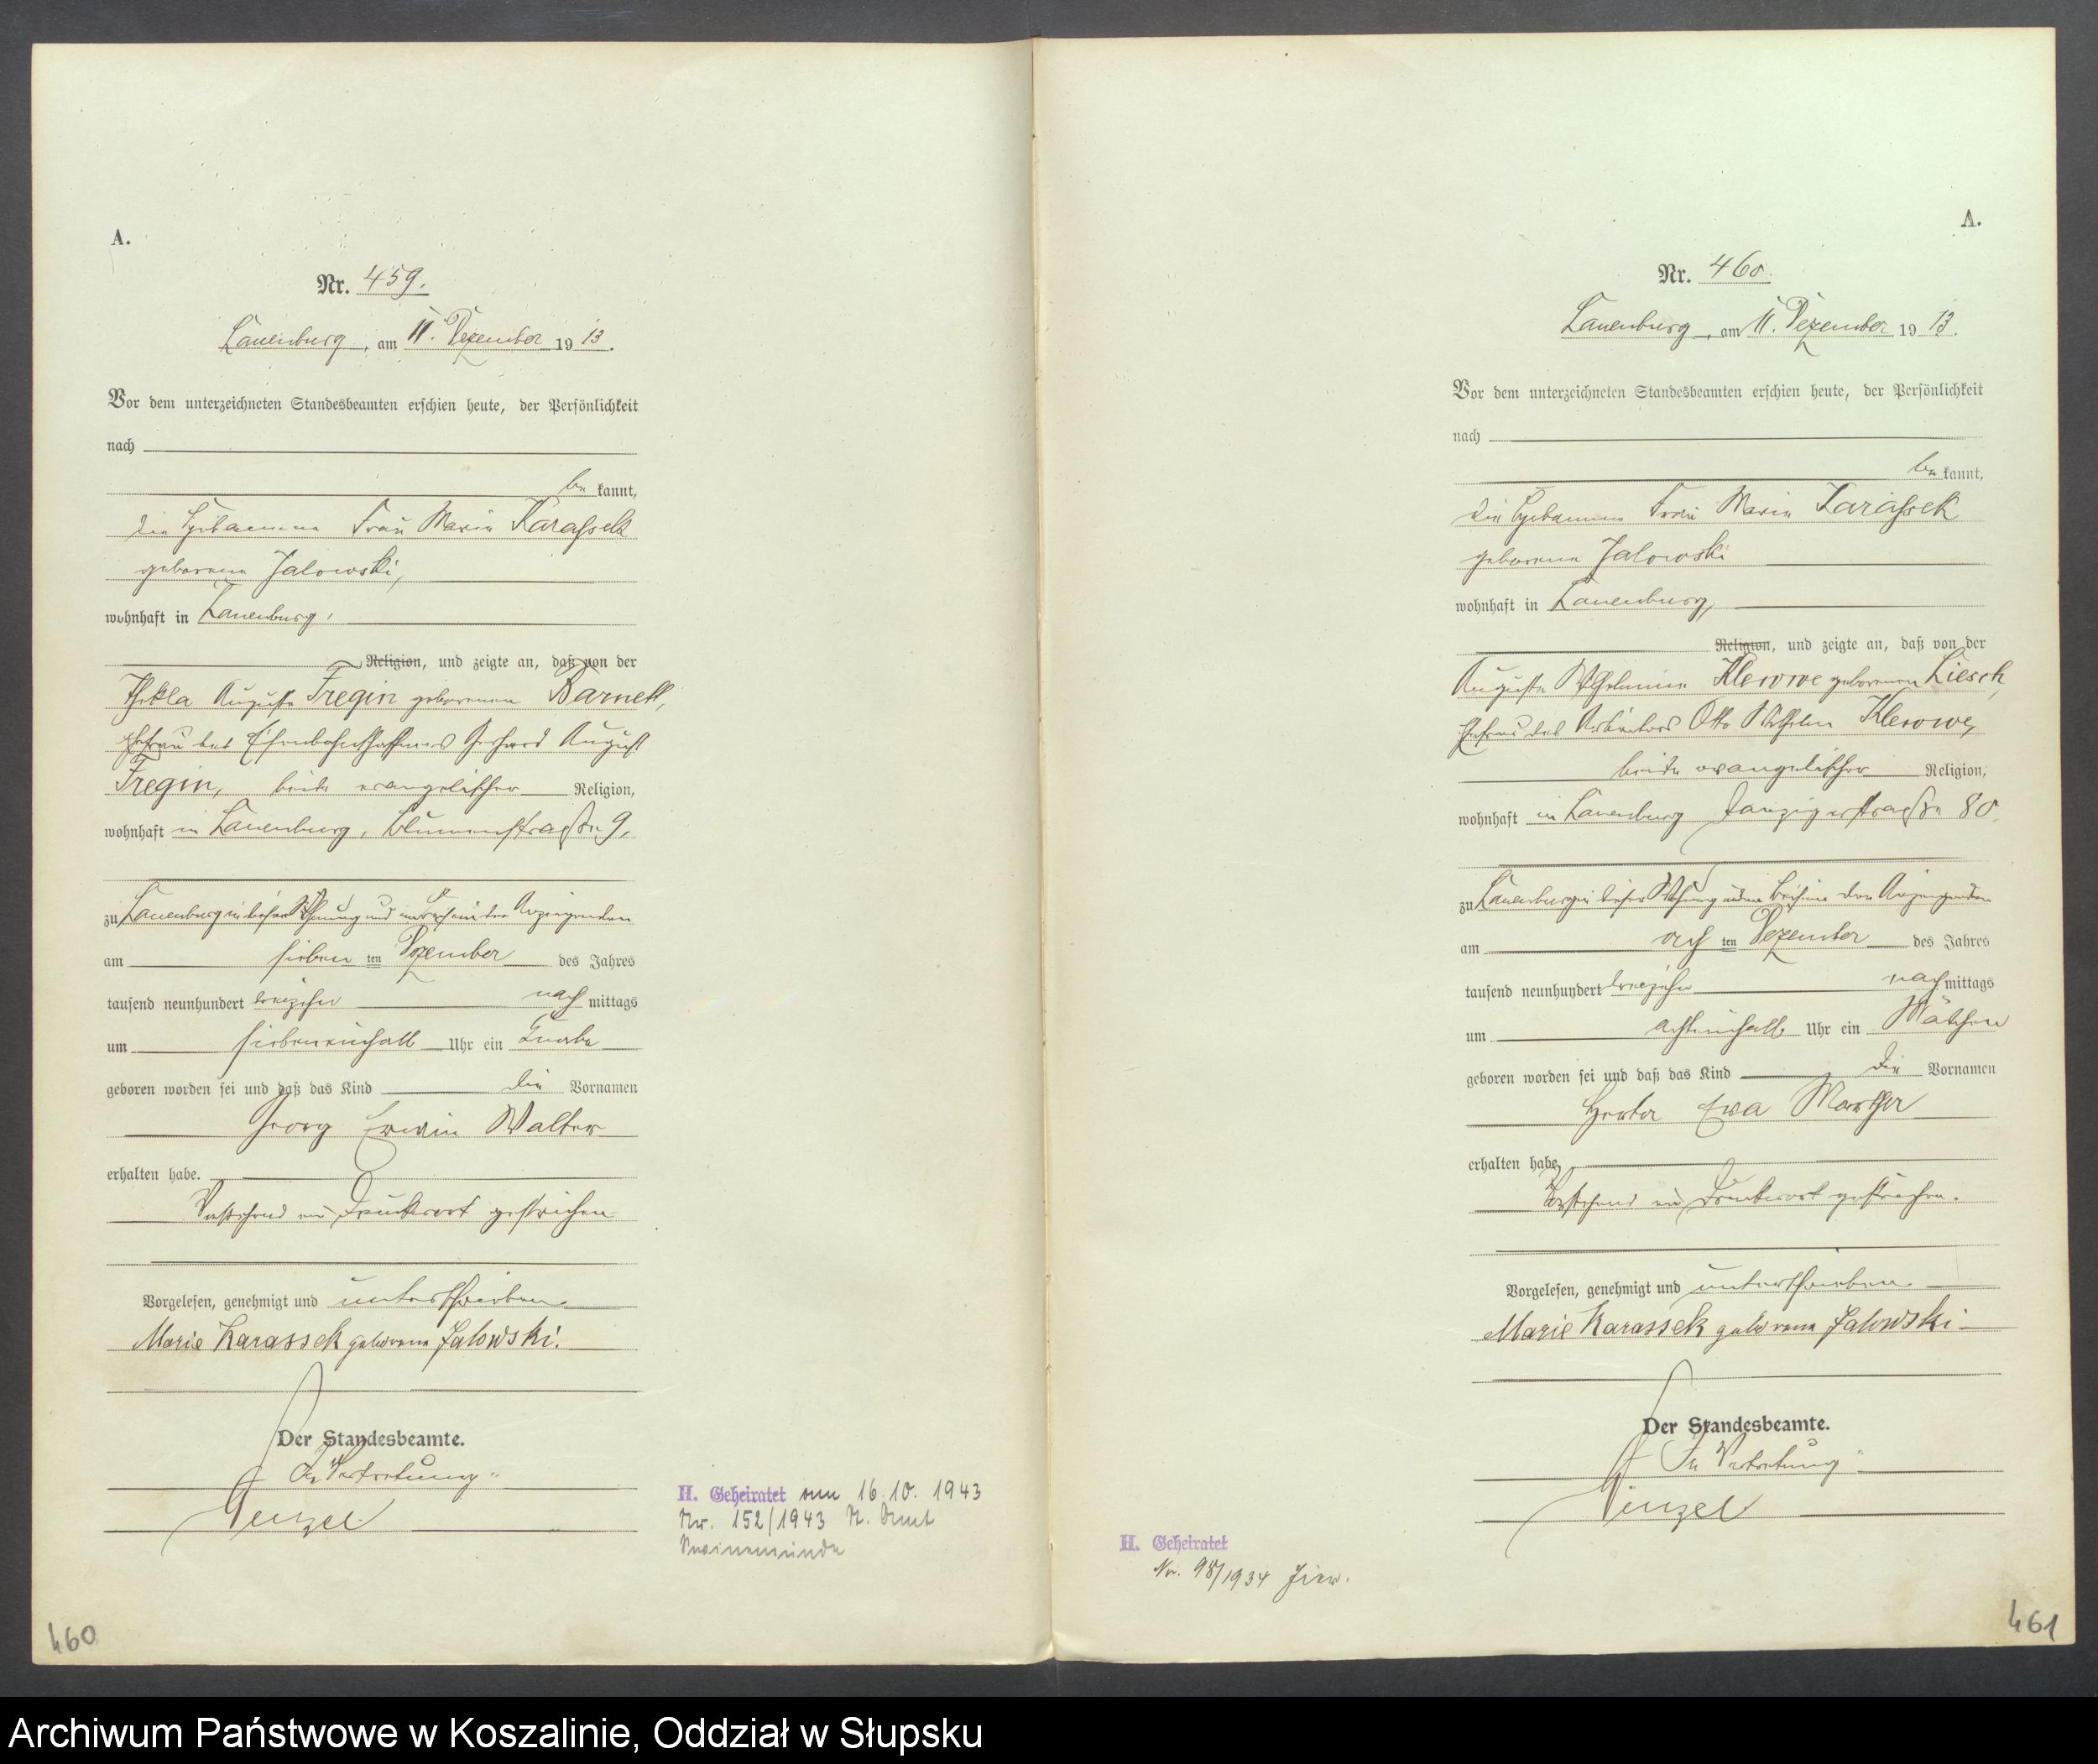 A.
Nr. 459.
Lauenburg, am 11. Dezember 1913.
Vor dem unterzeichneten Standesbeamten erschien heute, der Persönlichkeit
nach
be kannt,
die Hebamme Frau Marie Karassek
geborene Jalowski,
wohnhaft in Lauenburg,
Religion, und zeigte an, daß von der
Thekla Auguste Fregin geborenen Barnell,
Ehefrau des Eisenbahnschaffners Gerhard August
Fregin, beide evangelischer Religion,
wohnhaft in Lauenburg, Blumenstraße 9,
zu Lauenburg in dieser Wohnung und in Beisein der Anzeigenden
am sieben ten Dezember des Jahres
tausend neunhundert dreizehn nach mittags
um siebeneinhalb Uhr ein Knabe
geboren worden sei und daß das Kind die Vornamen
Georg Erwin Walter
erhalten habe.
Vorstehend ein Druckwort gestrichen
Vorgelesen, genehmigt und unterschrieben
Marie Karassek geborene Jalowski.
Der Standesbeamte.
In Vertretung
Wenzel
H. Geheiratet am 16.10.1943
Nr. 152/1943 St. Amt
Swinemünde
460
A.
Nr. 460.
Lauenburg, am 11. Dezember 1913.
Vor dem unterzeichneten Standesbeamten erschien heute, der Persönlichkeit
nach
be kannt,
die Hebamme Frau Marie Karassek
geborene Jalowski
wohnhaft in Lauenburg,
Religion, und zeigte an, daß von der
Auguste Wilhelmine Klewwe geborenen Liesch,
Ehefrau des Arbeiters Otto Wilhelm Klewwe,
beide evangelischer Religion,
wohnhaft in Lauenburg Danzigerstraße 80,
zu Lauenburg in dieser Wohnung und in Beisein der Anzeigenden
am ach ten Dezember des Jahres
tausend neunhundert dreizehn nach mittags
um achteinhalb Uhr ein Mädchen
geboren worden sei und daß das Kind die Vornamen
Herta Eva Martha
erhalten habe.
Vorstehend ein Druckwort gestrichen.
Vorgelesen, genehmigt und unterschrieben
Marie Karassek geborene Jalowski
Der Standesbeamte.
In Vertretung
Wenzel
H. Geheiratet
Nr. 98/1934 hier.
461
Archiwum Państwowe w Koszalinie, Oddział w Słupsku